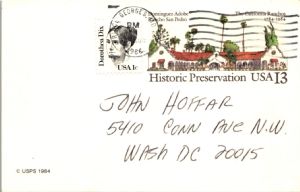 Dominguez Adobe
Rancho San Pedro
The California Ranchos
1784-1984
PM
1986
Dorothea Dix
USA 1c
Historic Preservation USA 13
JOHN HOFFAR
5410 CONN AVE N.W.
WASH DC 20015
© USPS 1984